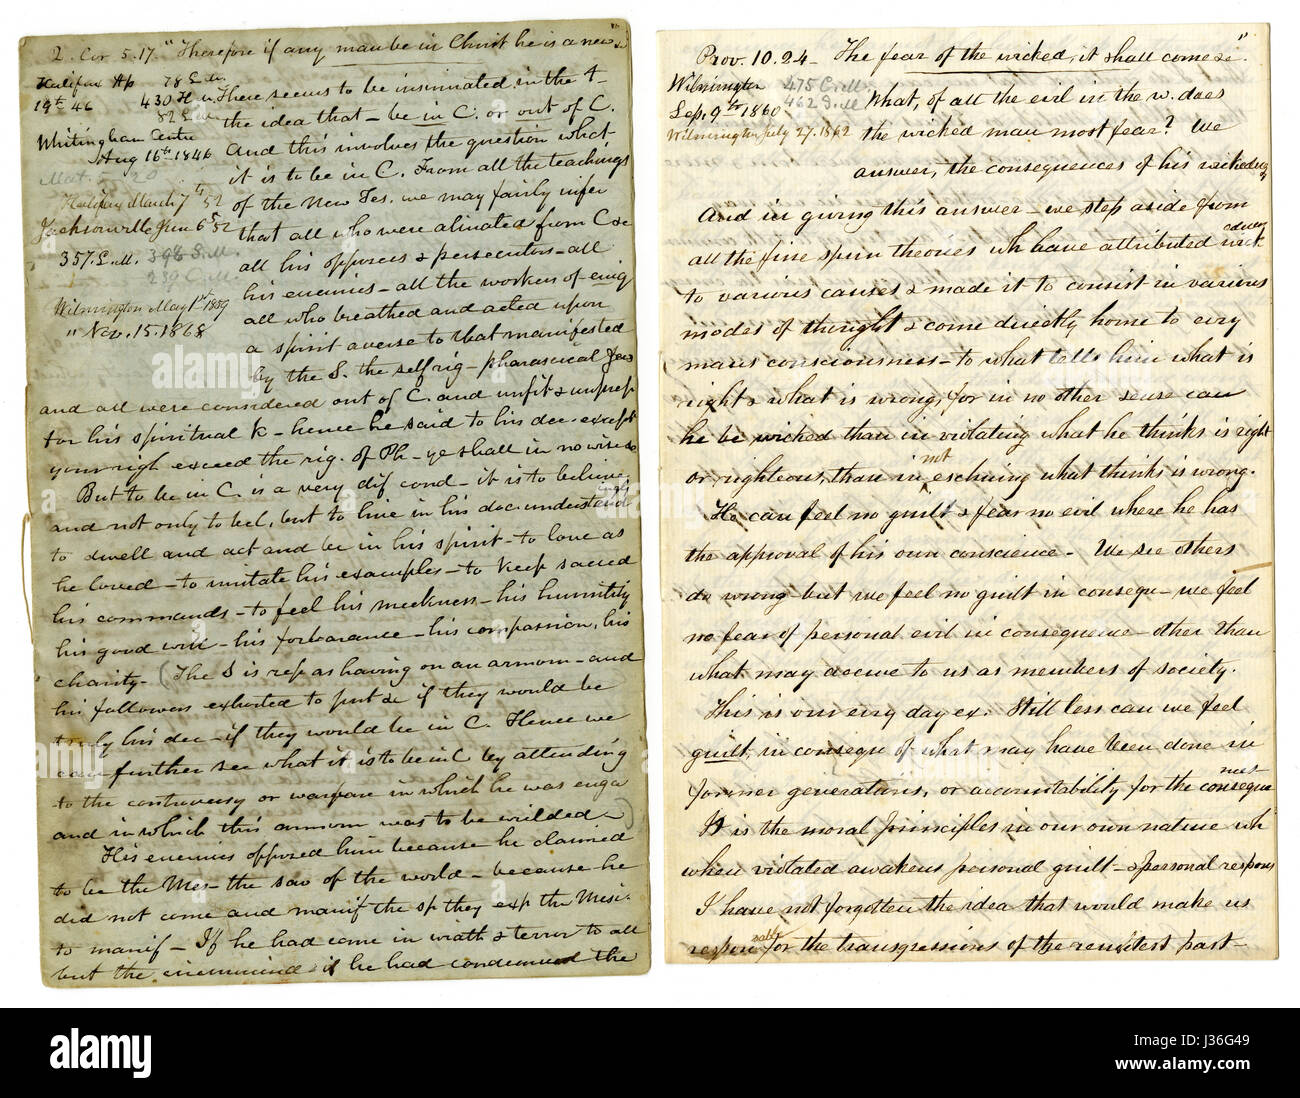 2. Cor. 5.17 "Therefore if any man be in Christ he is a new &c
Halifax Ap 78 L.M.
19th 46 430 H
82 L.M.
Whitingham Centre
Aug 16th 1846
Mat. 5 20
Halifax March 7th 52
Jacksonville June 6th 52
357. L.M. 398 S.M.
239 C.M.
Wilmington May 1st 1859
" Nov. 15. 1868
There seems to be insinuated in the
the idea that – be in C. or out of C.
And this involves the question what
it is to be in C. From all the teachings
of the New Tes. we may fairly infer
that all who were alinated from C &c
all his opposers & persecutors – all
his enemies – all the workers of – eniq
all who breathed and acted upon
a spirit averse to that manifested
by the S. the self rig – pharasical Jews
and all were considered out of C. and unfit & unprep
for his spiritual K – hence he said to his dec. except
your righ exceed the rig. of Ph – ye shall in no wise &c
But to be in C. is a very dif cond – it is to believe
and not only to bel, but to live in his doc. understand
to dwell and act and be in his spirit – to love as
he loved – to imitate his examples – to keep sacred
his commands – to feel his meekness – his humility
his good will – his forbarance – his compassion, his
charity – (The S is rep as having on an armom – and
his followers exhorted to put &c if they would be
truly his dec – if they would be in C. Hence we
can further see what it is to be in C by attending
to the controversy or warfare in which he was enga
and in which this armom was to be wielded –
His enemies opposed him because he claimed
to be the Mes – the sav of the world – because he
did not come and manif the sp they exp the Mesi-
to manif – If he had come in wrath & terror to all
but the if he had condemned the
Prov. 10. 24 – The fear of the wicked, it shall come &c"
Wilmington 475 C.M.
Sep. 9th 1860 462 S.M
Wilmington July 27. 1862
What, of all the evil in the w. does
the wicked man most fear? We
answer, the consequences of his wickedness
And in giving this answer – we step aside from
all the fine spun theories wh have attributed
to various causes & made it to consist in various
modes of thought & come directly home to evry
mans consciousness – to what tells him what is
right & what is wrong, for in no other sense can
he be wicked than in violating what he thinks is right
or righteous, than in not eschuing what thinks is wrong.
He can feel no guilt & fear no evil where he has
the approval of his own conscience – We see others
do wrong but we feel no guilt in consequ – we feel
no fear of personal evil in consequence – other than
what may accrue to us as members of society.
This is our evry day ex. Still less can we feel
guilt, in consequ of what may have been done in
former generations, or accountability for the consequences
It is the moral principles in our own nature wh
when violated awakens personal guilt – & personal respons
I have not forgotten the idea that would make us
responsable for the transgressions of the remotest past –
alamy
alamy
alamy
alamy stock photo
J36G49
www.alamy.com